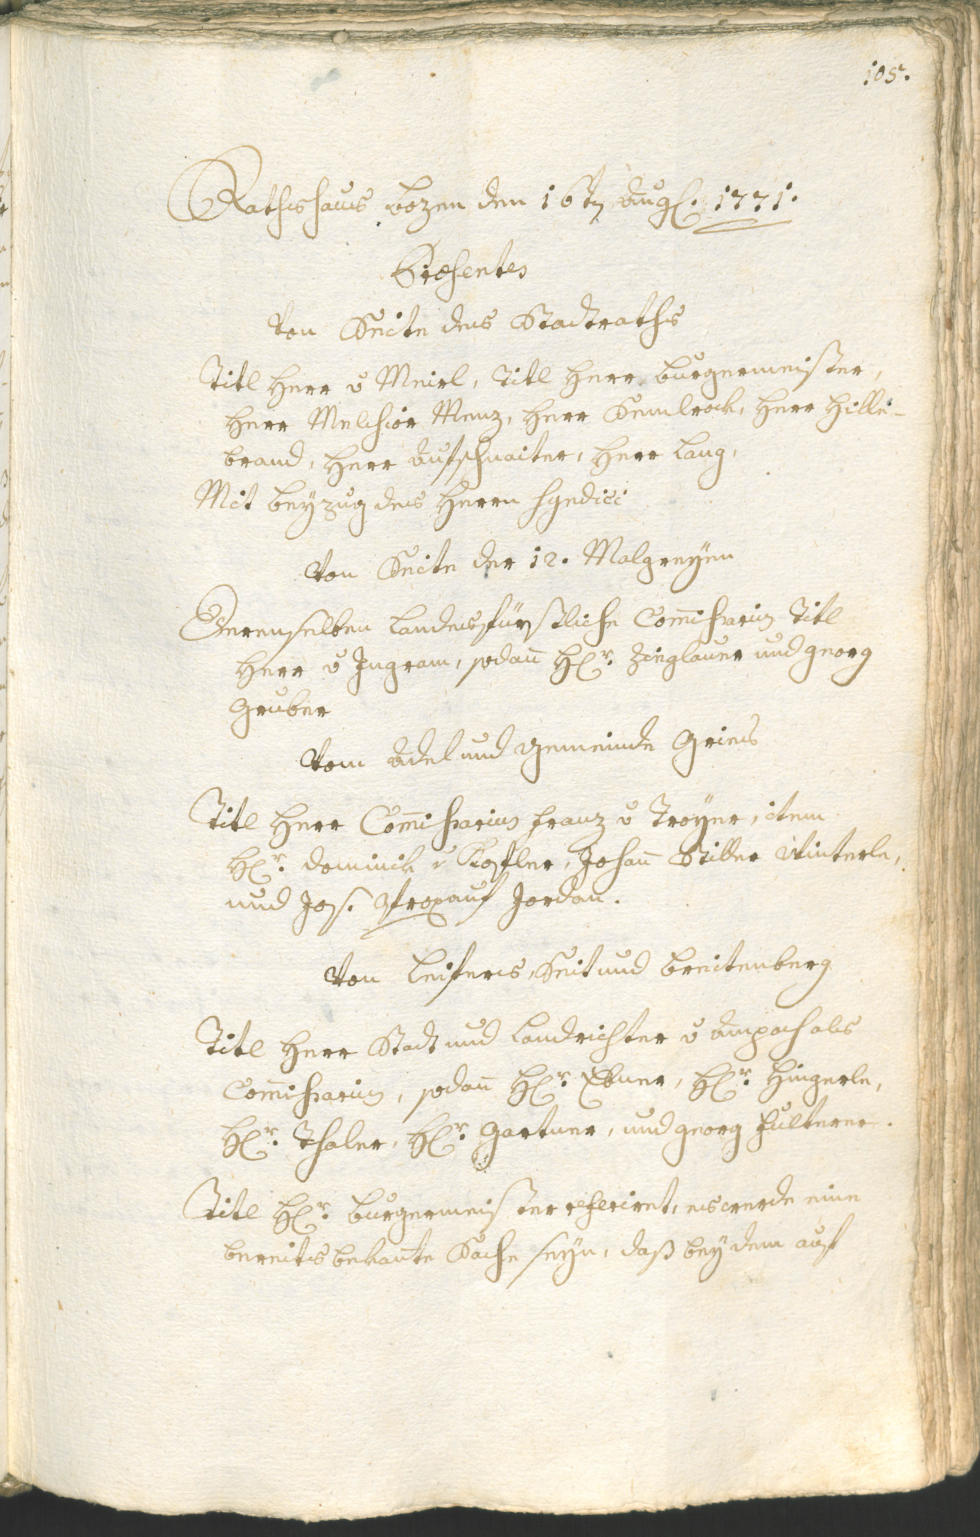 105.
Rathshaus Bozen den 16t Aug. 1771.
Præsentes
Von Seite des Stadtraths
Titl Herr v Meirl, Titl Herr Burgermeister,
Herr Melchior Menz, Herr Semlrock, Herr Hille-
brand, Herr Aufschnaiter, Herr Lang,
Mit beyzug des Herrn Syndici
Von Seite der 12. Malgreyen
Derenselben Landesfürstliche Commissarius Titl
Herr v Ingram, sodañ H: Zieglauer und Georg
Gruber
Vom Adel und Gemeinde Gries
Titl Herr Com̃issarius Franz v Troyer, item
H: Dominik v Kofler, Johañ Winterle,
und Jos. Jordan.
Von Leifers, Seit und Breitenberg
Titl Herr Stadt und Landrichter v Ampach als
Com̃issarius, sodañ H: Ebner, H: Hingerle,
H: Thaler, H: Gartner, und Georg Fulterer.
Titl H: Burgermeister referiret, es werde eine
bereits bekañte Sache seyn, daß bey dem auf